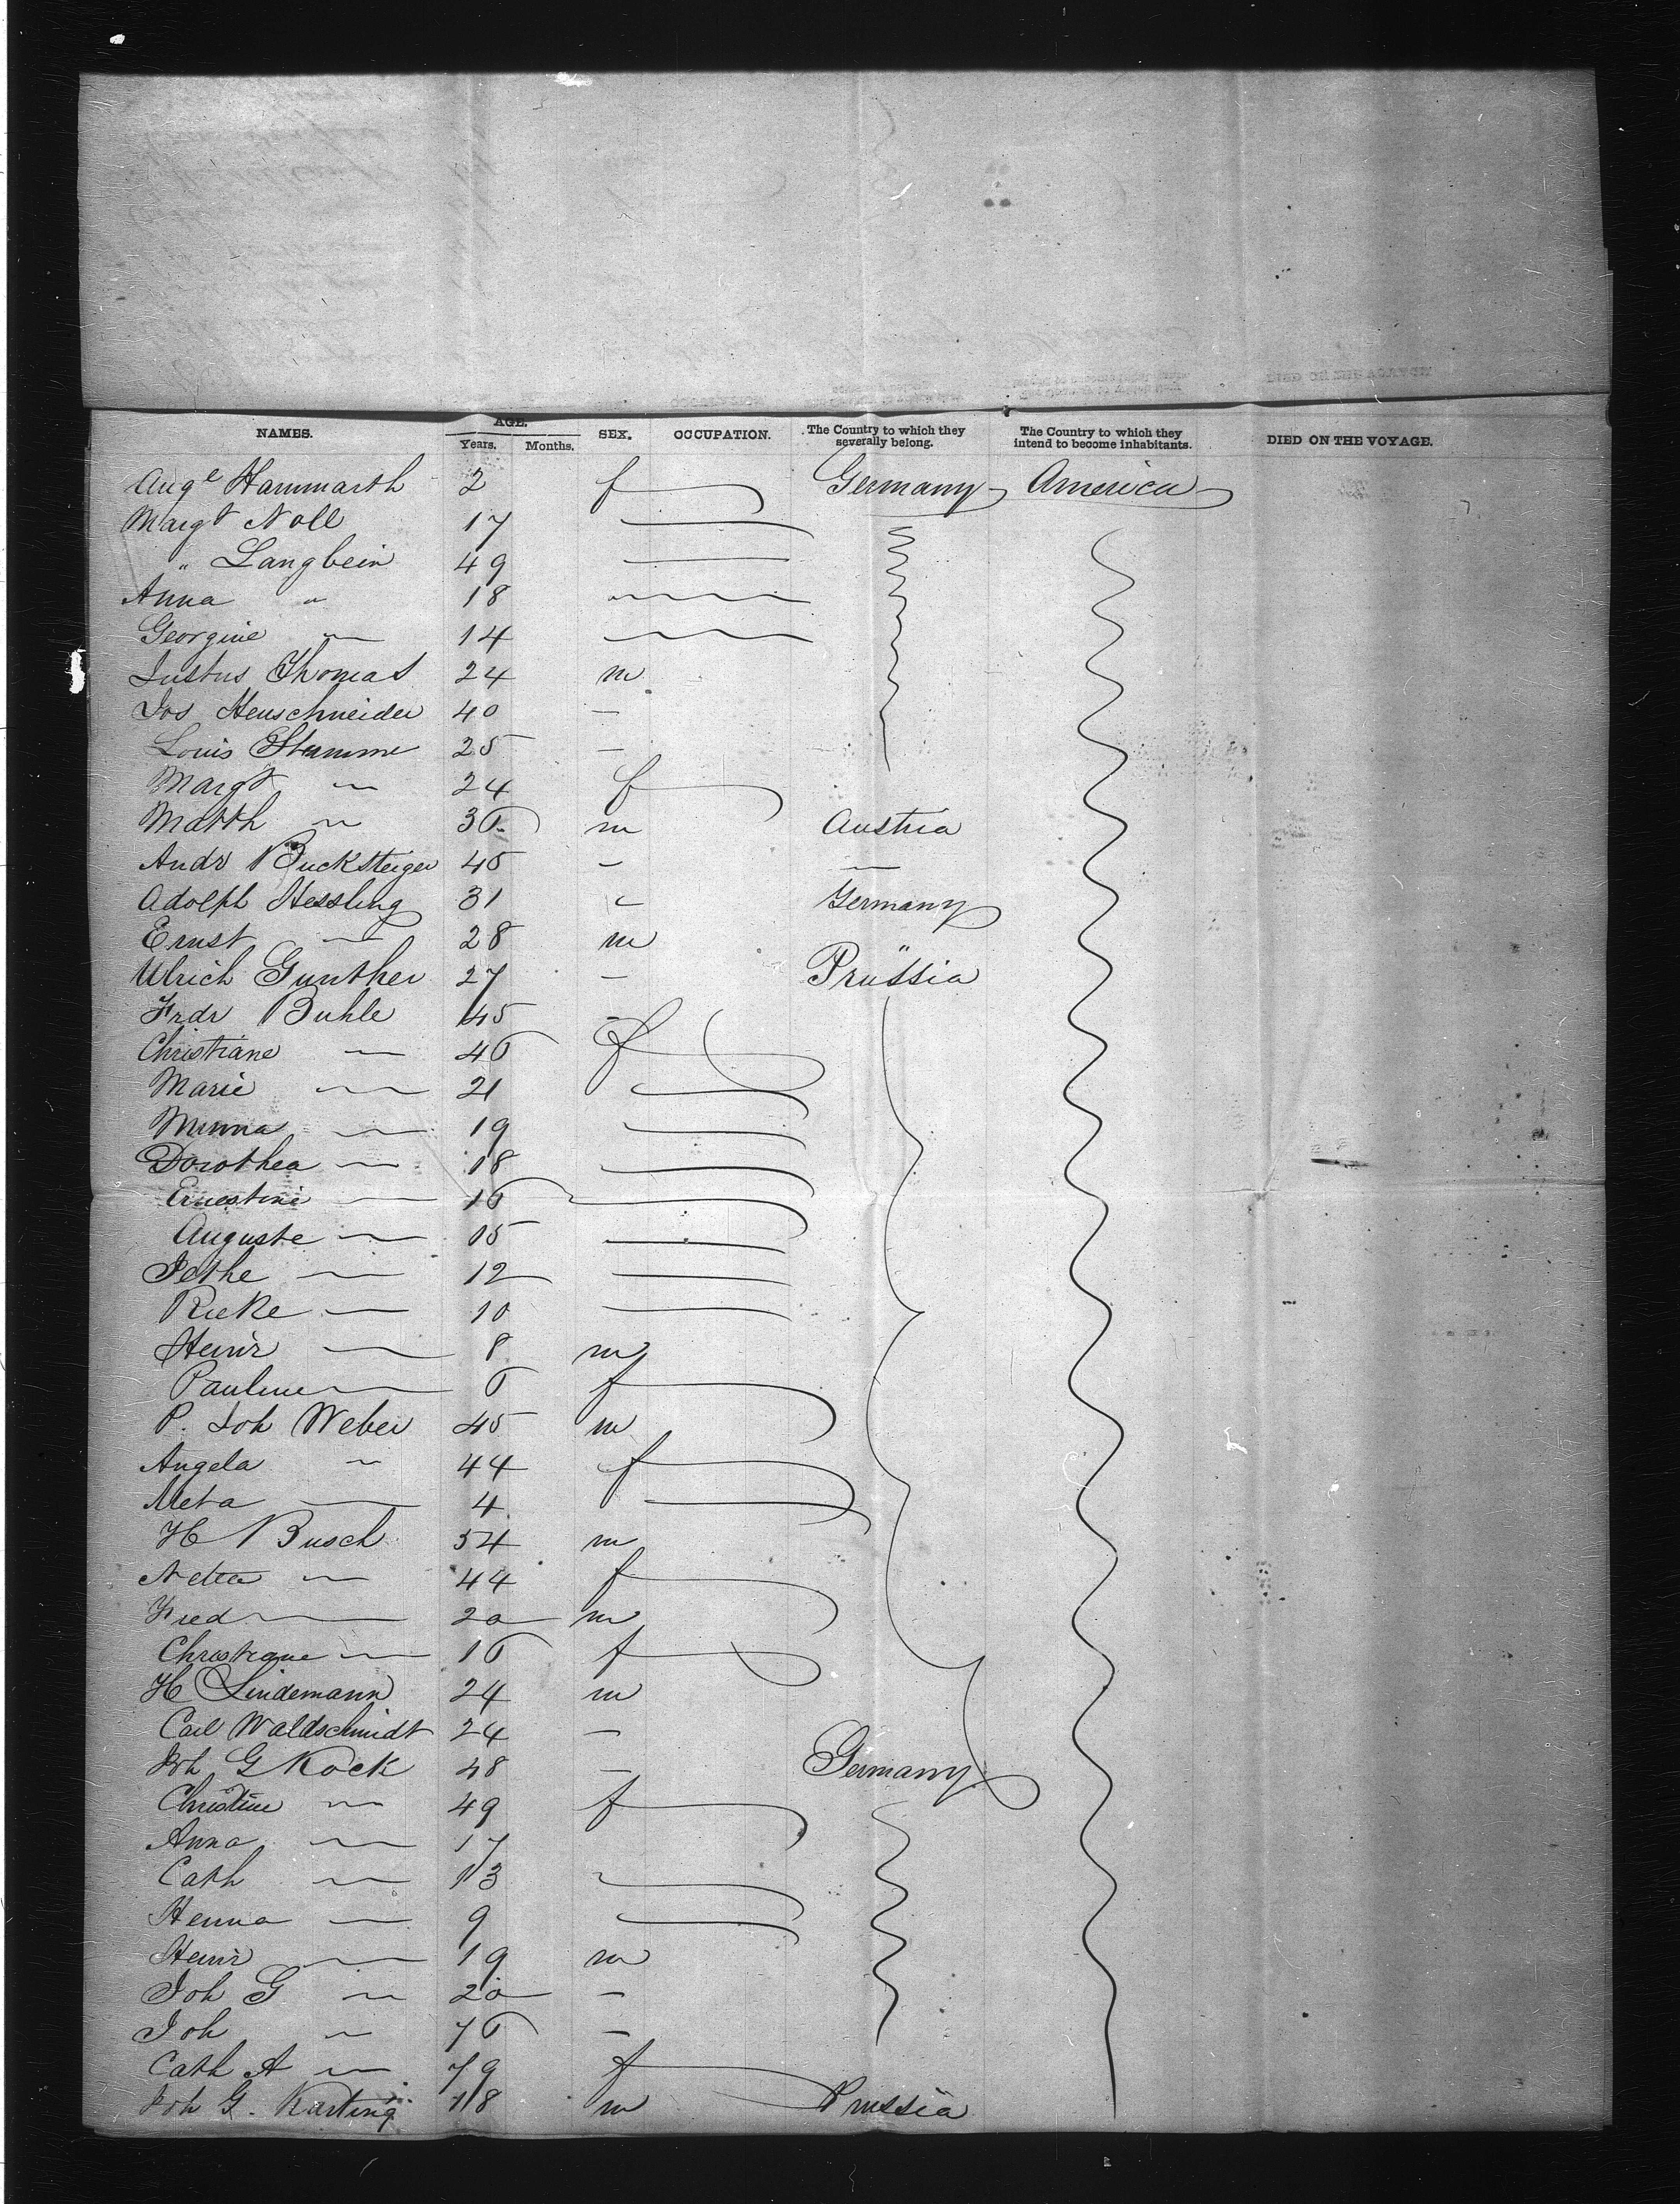 NAMES. AGE. SEX. OCCUPATION. The Country to which they severally belong. The Country to which they intend to become inhabitants. DIED ON THE VOYAGE.
Years. Months.
Augᵉ Hammarth 2 f Germany America
Margt Noll 17
" Langbein 49
Anna " 18
Georgine — 14
Justus Thomas 24 m
Jos Heuschneider 40 —
Louis Stumme 25 —
Margt — 24 f
Matth — 36 m Austria
Andr Bucksteiger 45 — —
Adolph Hessling 31 — Germany
Ernst — 28 m
Ulrich Gunther 27 — Prussia
Frdr Buhle 45 —
Christiane — 46 f
Marie — 21
Minna — 19
Dorothea — 18
Ernestine — 16
Auguste — 15
Jethe — 12
Rieke — 10
Heinr — 8 m
Pauline — 6 f
P. Joh Weber 45 m
Angela — 44 f
Meta — 4
H Busch 54 m
Netta — 44 f
Fred — 20 m
Christiane — 16 f
H Lindemann 24 m
Carl Waldschmidt 24 —
Joh G Kock 48 — Germany
Christine — 49 f
Anna — 17
Cath — 13
Henna — 9
Heinr — 19 m
Joh G — 20 —
Joh — 76 —
Cath A — 79 f
Joh G. Karting 18 m Prussia